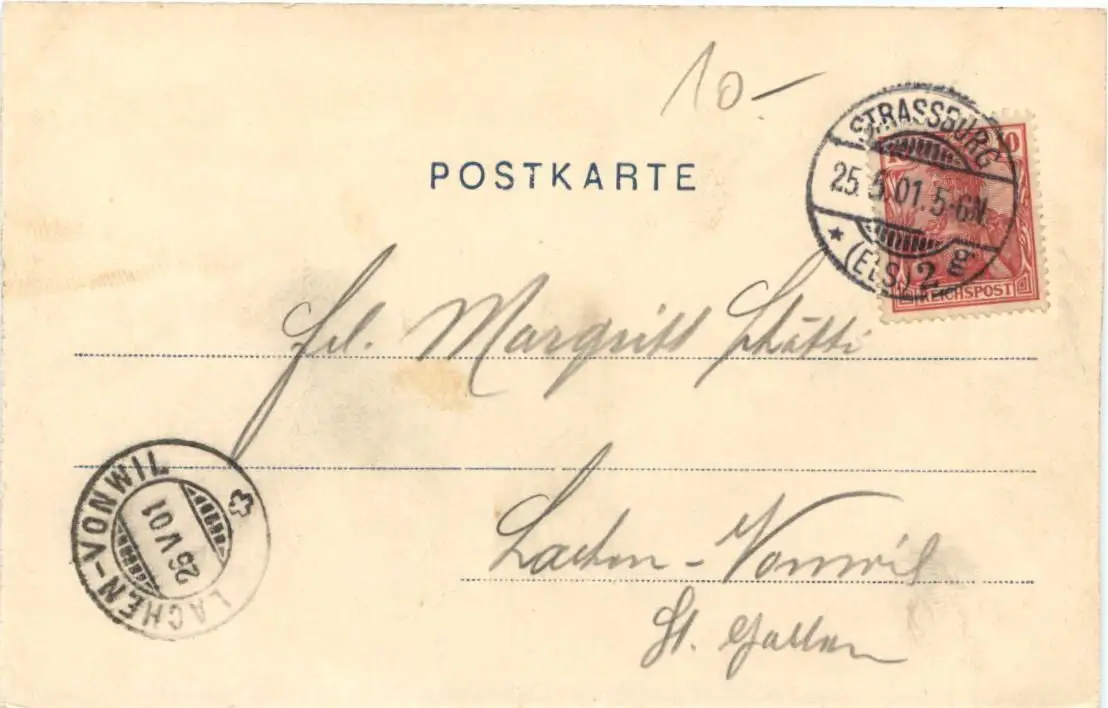 10-
POSTKARTE
STRASSBURG
25.5.01.5-6N.
* (ELS.) 2 g
10
REICHSPOST
Frl. Margritt Schätti
Lachen-Vonwil
St. Gallen
LACHEN-VONWIL
26 V 01